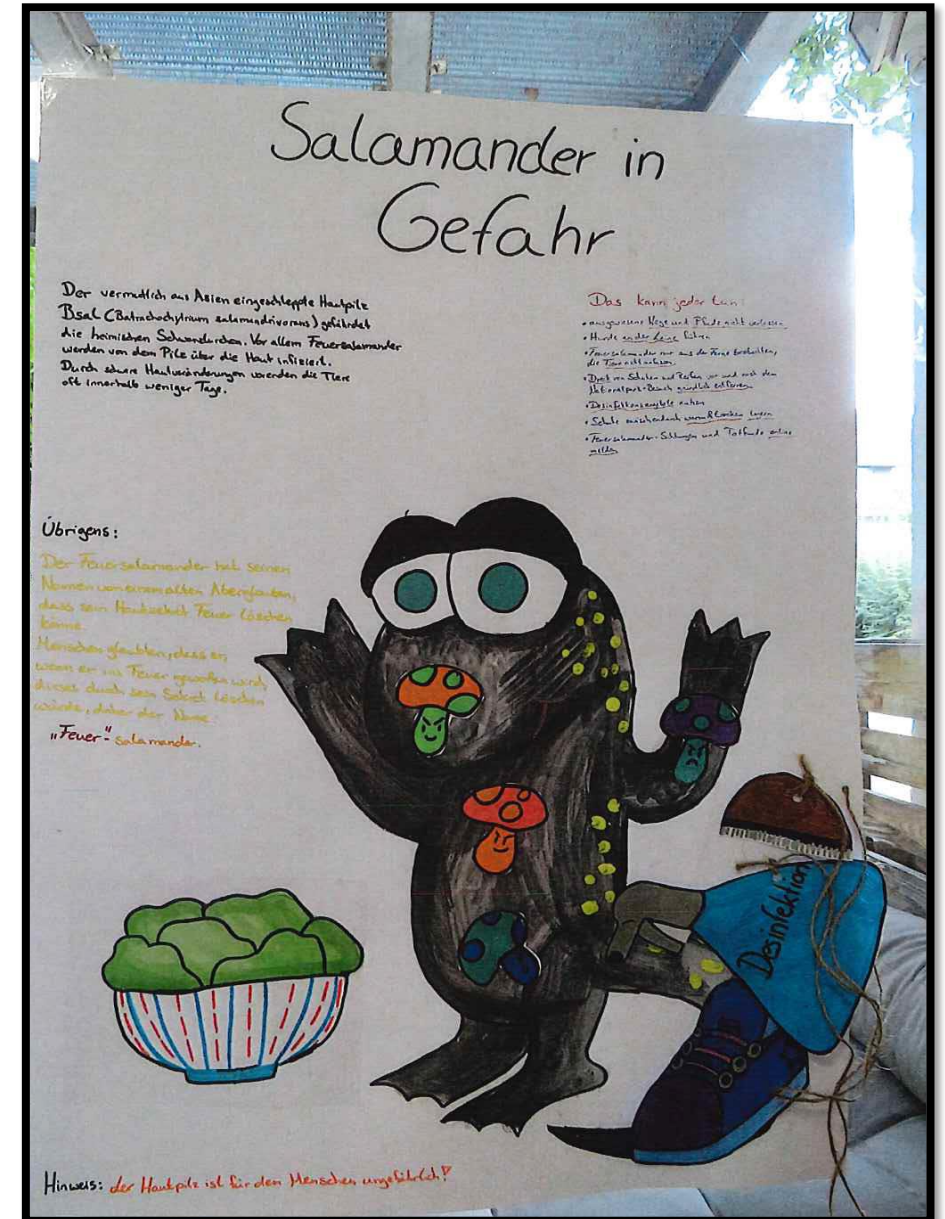 Salamander in
Gefahr
Der vermutlich aus Asien eingeschleppte Hautpilz
Bsal (Batrachochytrium salamandrivorans) gefährdet
die heimischen Schwanzlurche. Vor allem Feuersalamander
werden von dem Pilz über die Haut infiziert.
Durch schwere Hautveränderungen werden die Tiere
oft innerhalb weniger Tage.
Das kann jeder tun:
• ausgewiesene Wege und Pfade nicht verlassen
• Hunde an der Leine führen
• Feuersalamander nur aus der Ferne beobachten,
die Tiere nicht anfassen
• Dreck von Schuhen und Reifen vor und nach dem
Nationalpark-Besuch gründlich entfernen
• Desinfektionsangebote nutzen
• Schuhe zwischendurch warm & trocken lagern
• Feuersalamander-Sichtungen und Totfunde online
melden
Übrigens:
Der Feuersalamander hat seinen
Namen von einem alten Aberglauben,
dass sein Hautsekret Feuer löschen
könne.
Menschen glaubten, dass er,
wenn er ins Feuer geworfen wird,
dieses durch sein Sekret löschen
würde, daher der Name
"Feuer"-salamander.
Desinfektion
Hinweis: der Hautpilz ist für den Menschen ungefährlich!